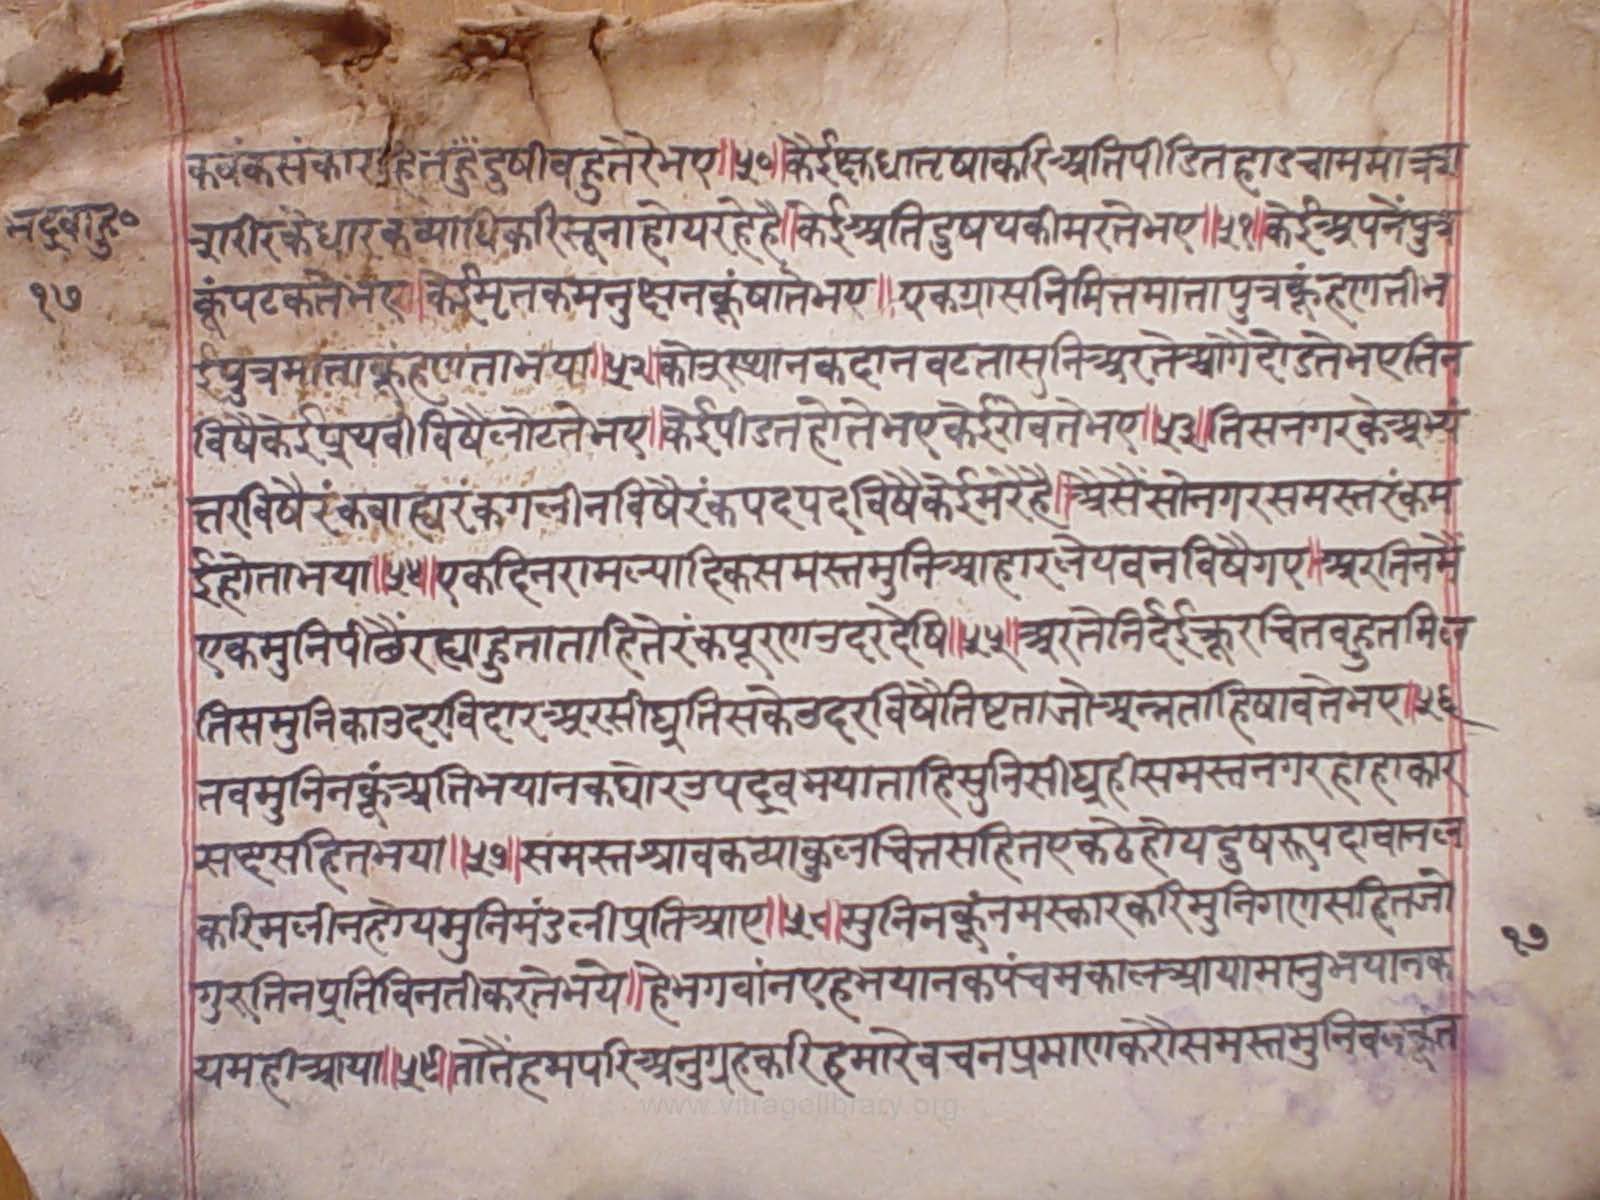 कवंकसंकारहितहैंदुषीवहुतेरेभए॥५०॥केईक्षुधातृषाकरिअतिपीडितहाडचाममात्रश
भद्रवाहु०
१७
शरीरकेधारकव्याधिकरिसूनाहोयरहेहै॥केईअतिदुषथकीमरतेभए॥५१॥केईअपनेंपुत्र
कूंपटकतेभए॥केईमृतकमनुक्षनकूंषातेभए॥एकग्रासनिमित्तमातापुत्रकूंहणतीन
ईपुत्रमाताकूंहणताभया॥५२॥कोउस्थानकदानवटतासुनिअरतेआगैदौडतेभएतिन
विषैकेईप्रथवीविषैलोटतेभए॥केईपीडतहोतेभएकेईरोवतेभए॥५३॥तिसनगरकेअभ्यं
तरविषैरंकवाह्यरंकगलीनविषैरंकपदपदविषैकेईमरैहै॥अैसैंसोनगरसमस्तरंकम
ईहोताभया॥५४॥एकदिनरामल्यादिकसमस्तमुनिआहारलेयवनविषैगए॥अरतिनमैं
एकमुनिपीछैंरह्याहुताताहितेरंकपूरणउदरदेषि॥५५॥अरतेनिर्दईक्रूरचितवहुतमिल
तिसमुनिकाउदरविदारअरसीघ्रतिसकेउदरविषैतिष्टताजोअन्नताहिषावतेभए॥५६
तवमुनिनकूंअतिभयानकघोरउपद्रवभयाताहिसुनिसीघ्रहीसमस्तनगरहाहाकार
सव्दसहितभया॥५७॥समस्तश्रावकव्याकुलचित्तसहितएकठेहोयदुषरूपदावानल
करिमलीनहोयमुनिमंडलीप्रतिआए॥५८॥मुनिनकूंनमस्कारकरिमुनिगणसहितजो
१७
गुरुतिनप्रतिविनतीकरतेभये॥हेभगवांनएहभयानकपंचमकालआयामानुभयानक
यमहीआया॥५९॥तातैंहमपरिअनुग्रहकरिहमारेवचनप्रमाणकरौसमस्तमुनिवनकूंत
www.vitragelibrary.org